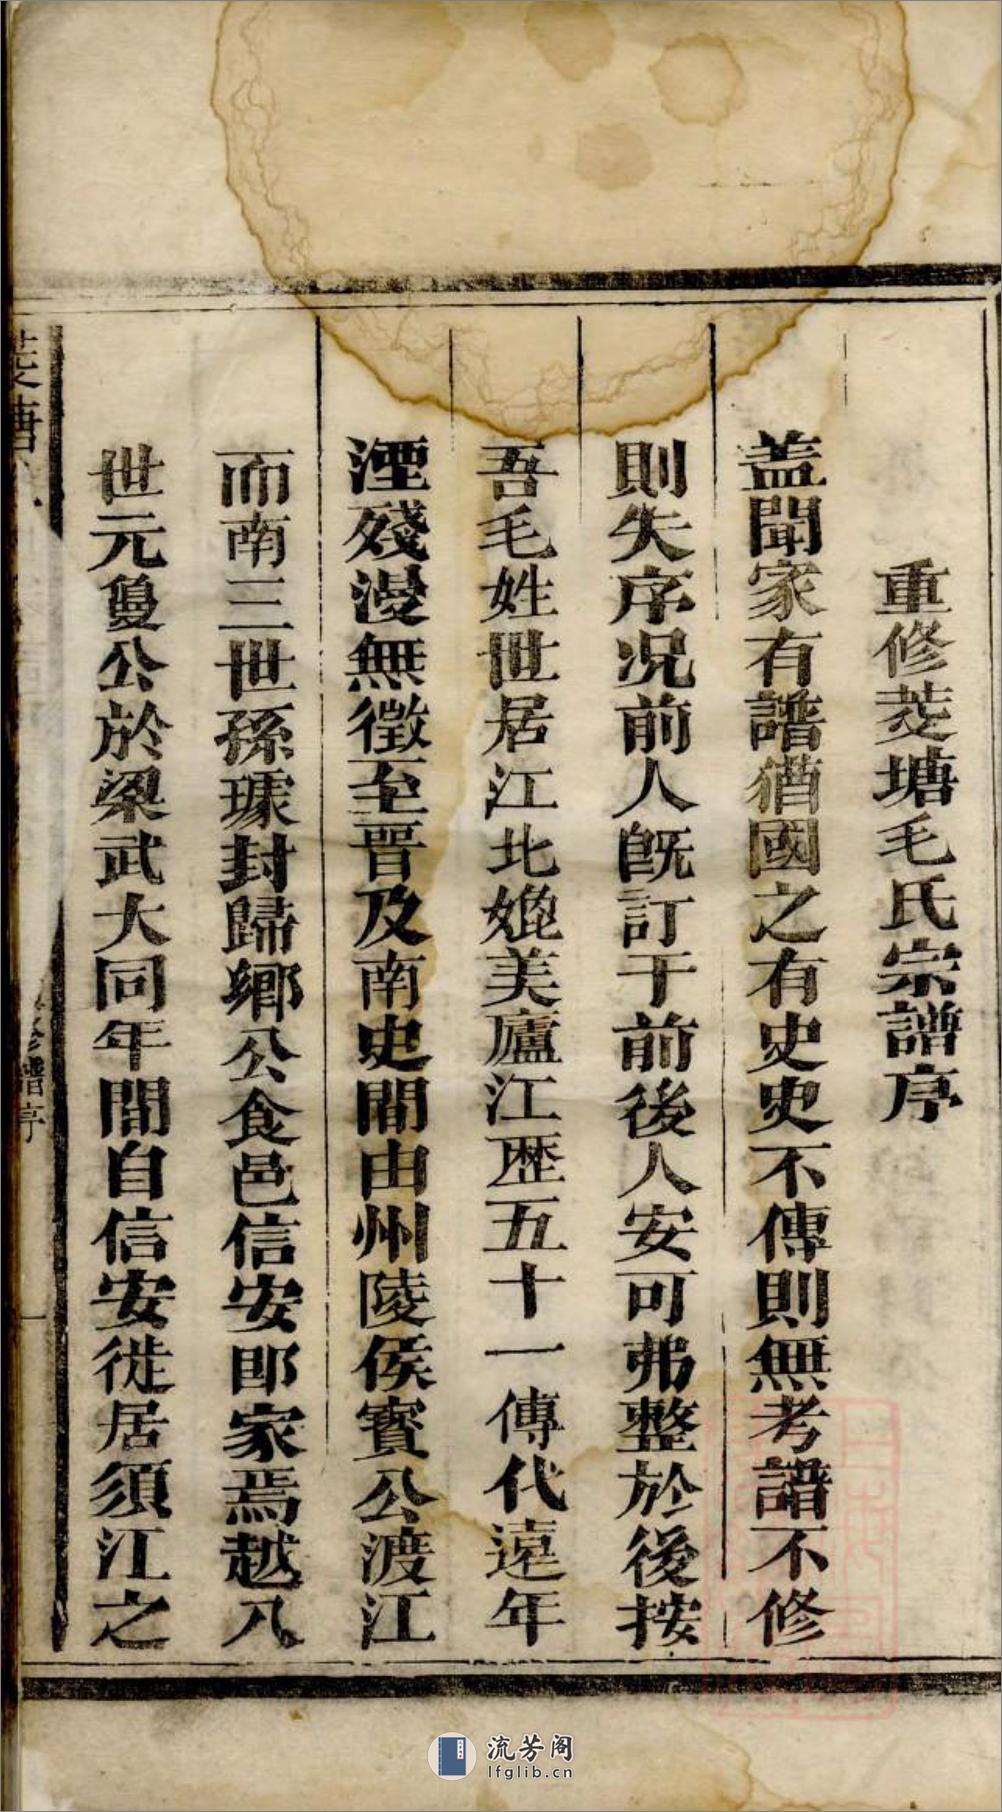 重修菱塘毛氏宗譜序
盖聞家有譜猶國之有史史不傳則無考譜不修
則失序况前人既訂于前後人安可弗整於後按
吾毛姓世居江北㛯美廬江歴五十一傳代遠年
湮殘漫無徵至晋及南史間由州陵侯寳公渡江
而南三世孫璩封歸鄉公食邑信安郎家焉越八
世元隻公於梁武大同年間自信安徙居須江之
菱塘
修譜序
一
流芳阁
lfglib.cn